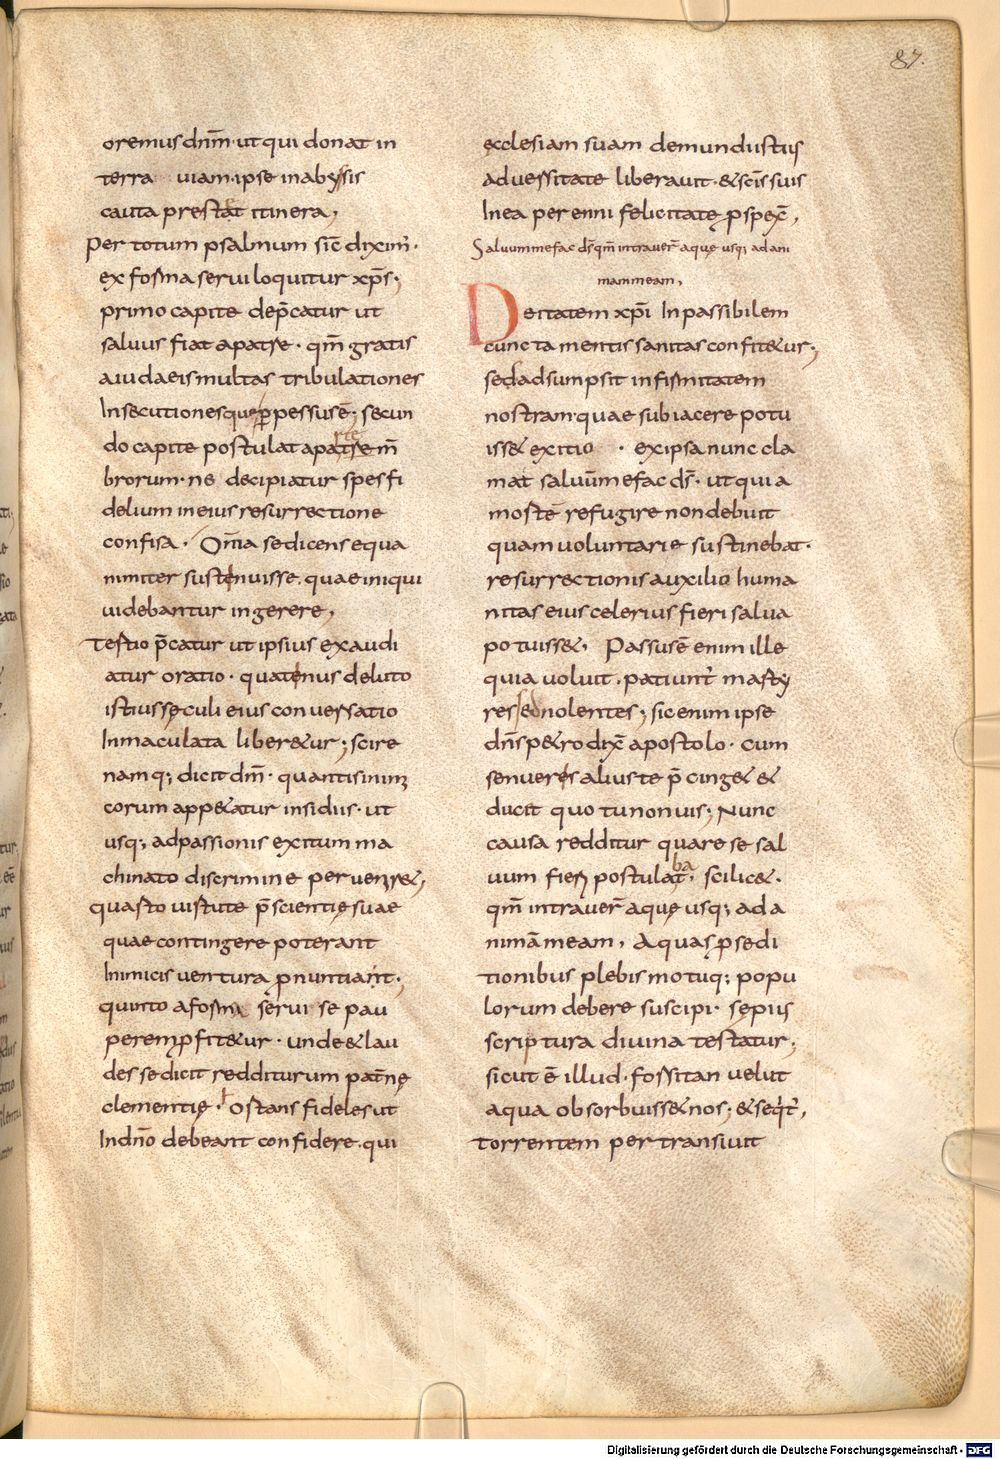 87.
oremus dnm̅· ut qui donat in
terra uiam· ipse in abyssis
cauta prestat itinera,
Per totum psalmum sic̅ dixim᾽·
ex forma serui loquitur xp̅s;
primo capite dep̅catur ut
saluus fiat a patre· qm̅ gratis
a iudaeis multas tribulationes
Insecutionesque p̲pessus e̅; secun
do capite postulat a patre m̅
brorum· ne decipiatur spes fi
delium in eius resurrectione
confisa· Om̅ia se dicens equa
nimiter sustenuisse. quae iniqui
uidebantur ingerere,
Tertio p̅catur ut ipsius exaudi
atur oratio· quatenus de luto
istius sęculi eius conuersatio
Inmaculata liber&ur; scire
namq; dicit dnm̅· quantis inim
corum app&atur insidiis· ut
usq; ad passionis exitum ma
chinato discrimine peruenir&;
quarto uirtute p̅scientię suae
quae contingere poterant
Inimicis uentura p̲nuntiant·
quinto a forma serui se pau
perem p̲fit&ur· unde & lau
des se dicit redditurum paternę
clementię· ortans fideles ut
In dn̅o debeant confidere. qui
ęcclesiam suam de mundi istiis
aduersitate liberauit· & sc̅is suis
Inea perenni felicitatę p̲spex̅,
Saluum me fac ds̅ qm̅ intrauer̅ aquę usq; ad ani
mam meam,
Deitatem xp̅i Inpassibilem
cuncta mentis sanitas confit&ur;
sed adsumpsit infirmitatem
nostram· quae subiacere potu
iss& exitio · ex ipsa nunc cla
mat saluu̅ me fac ds̅· ut qui a
morte̅ refugire non debuit
quam uoluntarie sustinebat·
resurrectionis auxilio huma
nitas eius celerius fieri salua
potuiss&, Passus e̅ enim ille
quia uoluit, patiunt᾽ marty
res sed nolentes; sic enim ipse
dn̅s p&ro dix̅ apostolo· cum
senueris alius te p̅cing& &
ducit quo tu non uis; Nunc
causa redditur quare se sal
ba
uum fieri postulat, scilic&·
qm̅ intrauer̅ aquę usq; ad a
nima̅ meam, Aquas p̲ sedi
tionibus plebis motuq; popu
lorum debere suscipi· sępius
scriptura diuina testatur;
sicut e̅ illud· forsitan uelut
aqua obsorbuiss& nos; & seqt᾽,
Torrentem pertransiuit
Digitalisierung gefördert durch die Deutsche Forschungsgemeinschaft - DFG